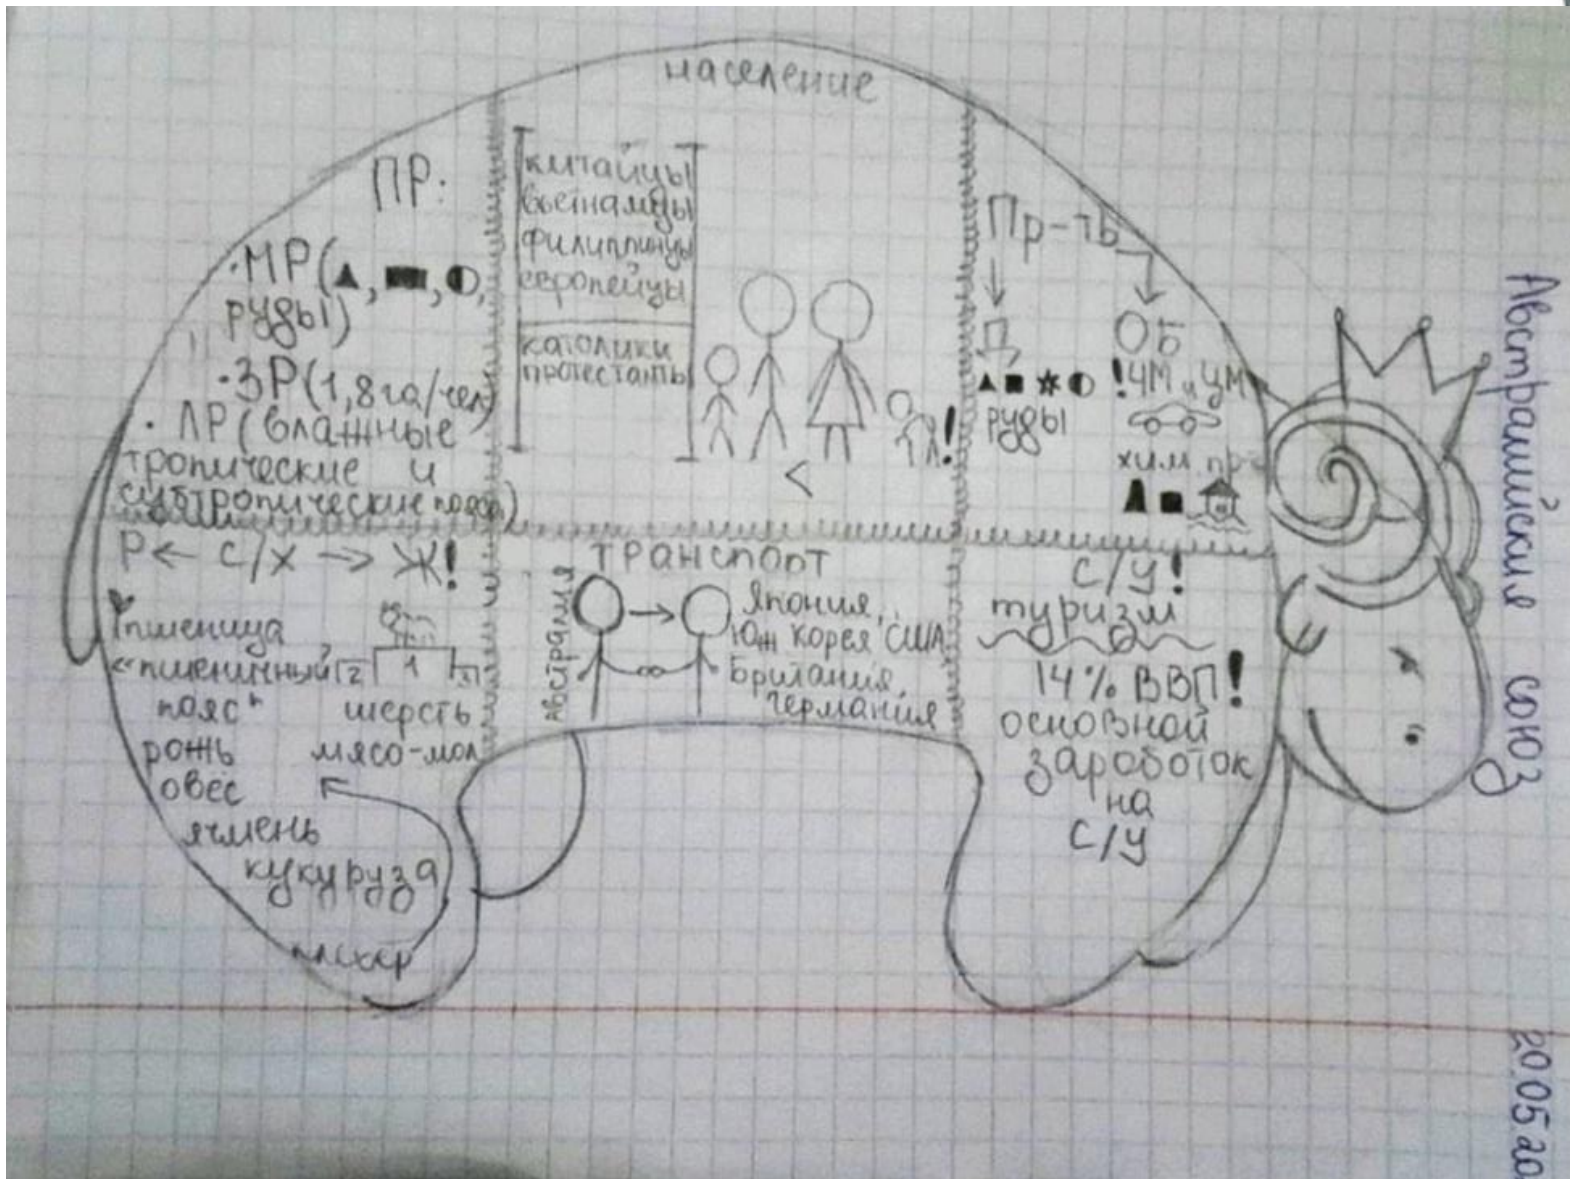 население
ПР:
·МР(▲, ■, ◐,
руды)
·ЗР(1,8га/чел)
·ЛР(влажные
тропические и
субтропические пояса)
китайцы
вьетнамцы
филиппинцы
европейцы
католики
протестанты
!
<
Пр-ть
Д
ОБ
▲ ■ ✶ ◐
руды
!ЧМ и ЦМ
хим пр
Р ← с/х → Ж!
пшеница
"пшеничный
пояс"
рожь
овёс
ячмень
кукуруза
2 1 3
шерсть
мясо-мол
транспорт
Австралия
Япония,
Юж Корея, США
Британия,
Германия
с/у!
туризм
14% ВВП!
основной
зароботок
на
с/у
Австралийский союз
20.05.20